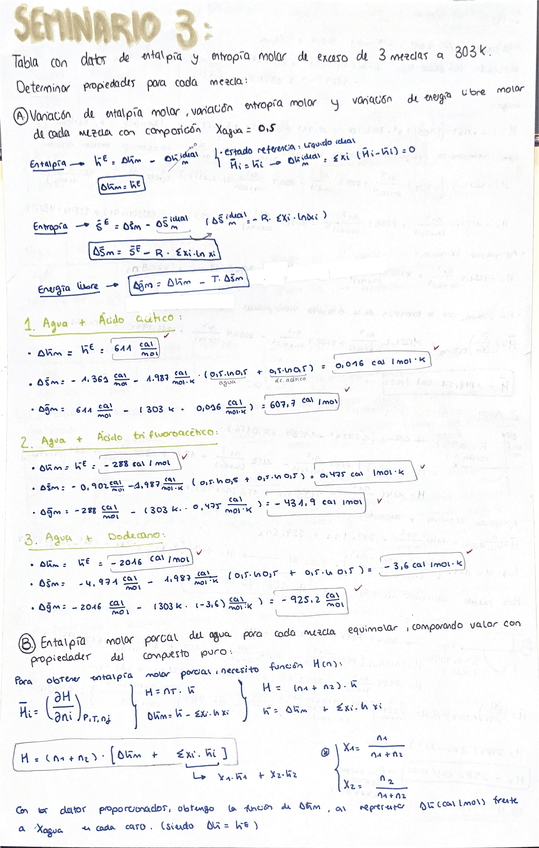 SEMINARIO 3:
Tabla con datos de entalpía y entropía molar de exceso de 3 mezclas a 303K.
Determinar propiedades para cada mezcla:
Ⓐ Variación de entalpía molar, variación entropía molar y variación de energía libre molar
de cada mezcla con composición Xagua = 0,5
Entalpía → h̄ᴱ = Δh̄m - Δh̄m ideal { · estado referencia: líquido ideal
H̄i = h̄i → Δh̄m ideal = Σxi (H̄i - h̄i) = 0
Δh̄m = h̄ᴱ
Entropía → s̄ᴱ = Δs̄m - Δs̄m ideal (Δs̄m ideal = - R · Σxi · lnxi)
Δs̄m = s̄ᴱ - R · Σxi · ln xi
Energía libre → Δḡm = Δh̄m - T · Δs̄m
1. Agua + Ácido acético:
· Δh̄m = h̄ᴱ = 611 cal/mol ✓
· Δs̄m = - 1,361 cal/mol - 1,987 cal/mol·K · (0,5·ln0,5 + 0,5·ln0,5) = 0,016 cal/mol·K ✓
agua ac. acético
· Δḡm = 611 cal/mol - (303 K · 0,016 cal/mol·K) = 607,7 cal/mol ✓
2. Agua + Ácido trifluoroacético:
· Δh̄m = h̄ᴱ = - 288 cal/mol ✓
· Δs̄m = - 0,902 cal/mol - 1,987 cal/mol·K (0,5·ln0,5 + 0,5·ln0,5) = 0,475 cal/mol·K ✓
· Δḡm = -288 cal/mol - (303K · 0,475 cal/mol·K) = - 431,9 cal/mol ✓
3. Agua + Dodecano:
· Δh̄m = h̄ᴱ = - 2016 cal/mol ✓
· Δs̄m = - 4,971 cal/mol - 1,987 cal/mol·K (0,5·ln0,5 + 0,5·ln0,5) = - 3,6 cal/mol·K ✓
· Δḡm = - 2016 cal/mol - (303K · (-3,6) cal/mol·K) = - 925,2 cal/mol ✓
Ⓑ Entalpía molar parcial del agua para cada mezcla equimolar, comparando valor con
propiedades del compuesto puro:
Para obtener entalpía molar parcial, necesito función H(n):
H̄i = (∂H/∂ni)P,T,nj } H = nT · h̄ } H = (n1 + n2) · h̄
Δh̄m = h̄ - Σxi · h̄i } h̄ = Δh̄m + Σxi · h̄i
H = (n1 + n2) · [Δh̄m + Σxi · h̄i] ⊛ { X1 = n1/n1+n2
↳ x1·h̄1 + x2·h̄2 X2 = n2/n1+n2
Con los datos proporcionados, obtengo la función de Δh̄m, al representar Δh̄ (cal/mol) frente
a Xagua en cada caso. (siendo Δh̄ = h̄ᴱ)